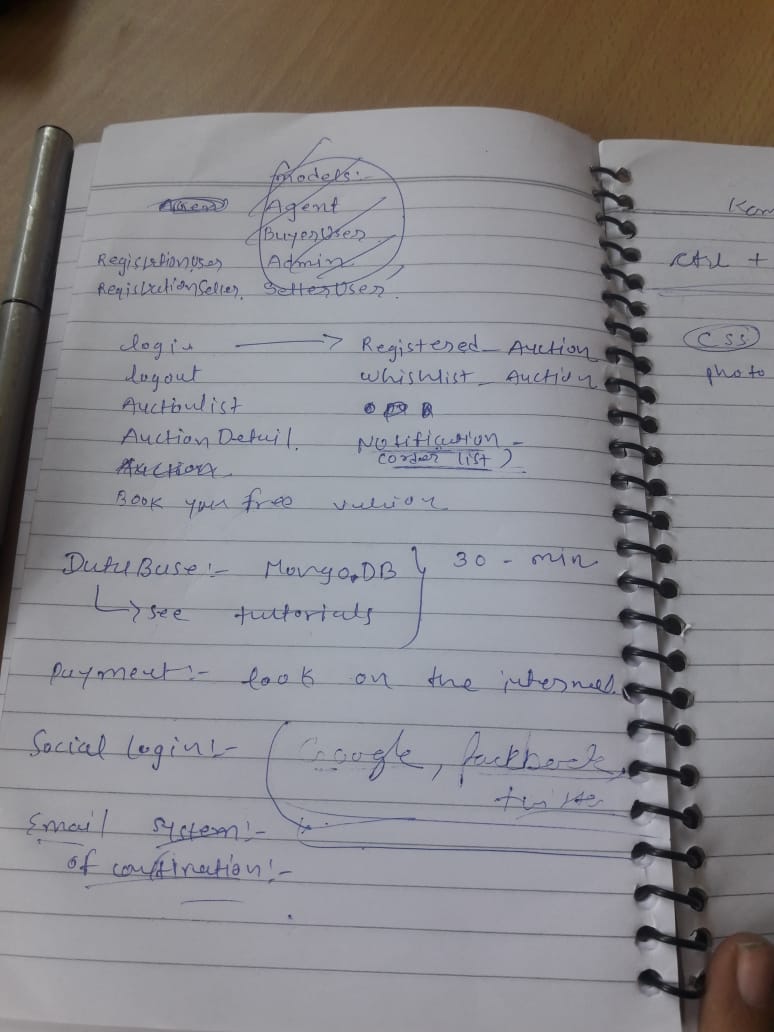 Models:-
Agent
BuyerUser
RegistrtionUser Admin
RegistrctionSeller. SellerUser.
login → Registered_Auction
logout Whishlist_Auction
Auctionlist
Auction Detail. Notification -
Auction (order list)
Book your free
DataBase:- MongoDB } 30 - min
↳ see tuttorials
Payment:- look on the internet.
Social Login:- (Google, fackbook,
twitter
Email system:-
of confrination:-
Ctrl +
CSS
photo